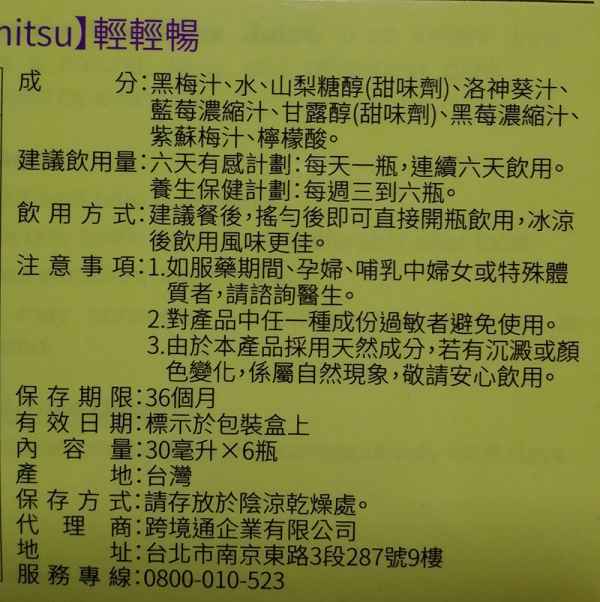 nitsu】輕輕暢
成分:黑梅汁、水、山梨糖醇(甜味劑)、洛神葵汁、
藍莓濃縮汁、甘露醇(甜味劑)、黑莓濃縮汁、
紫蘇梅汁、檸檬酸。
建議飲用量:六天有感計劃:每天一瓶,連續六天飲用。
養生保健計劃:每週三到六瓶。
飲用方式:建議餐後,搖勻後即可直接開瓶飲用,冰涼
後飲用風味更佳。
注意事項:1.如服藥期間、孕婦、哺乳中婦女或特殊體
質者,請諮詢醫生。
2.對產品中任一種成份過敏者避免使用。
3.由於本產品採用天然成分,若有沉澱或顏
色變化,係屬自然現象,敬請安心飲用。
保存期限:36個月
有效日期:標示於包裝盒上
內容量:30毫升×6瓶
產地:台灣
保存方式:請存放於陰涼乾燥處。
代理商:跨境通企業有限公司
地址:台北市南京東路3段287號9樓
服務專線:0800-010-523